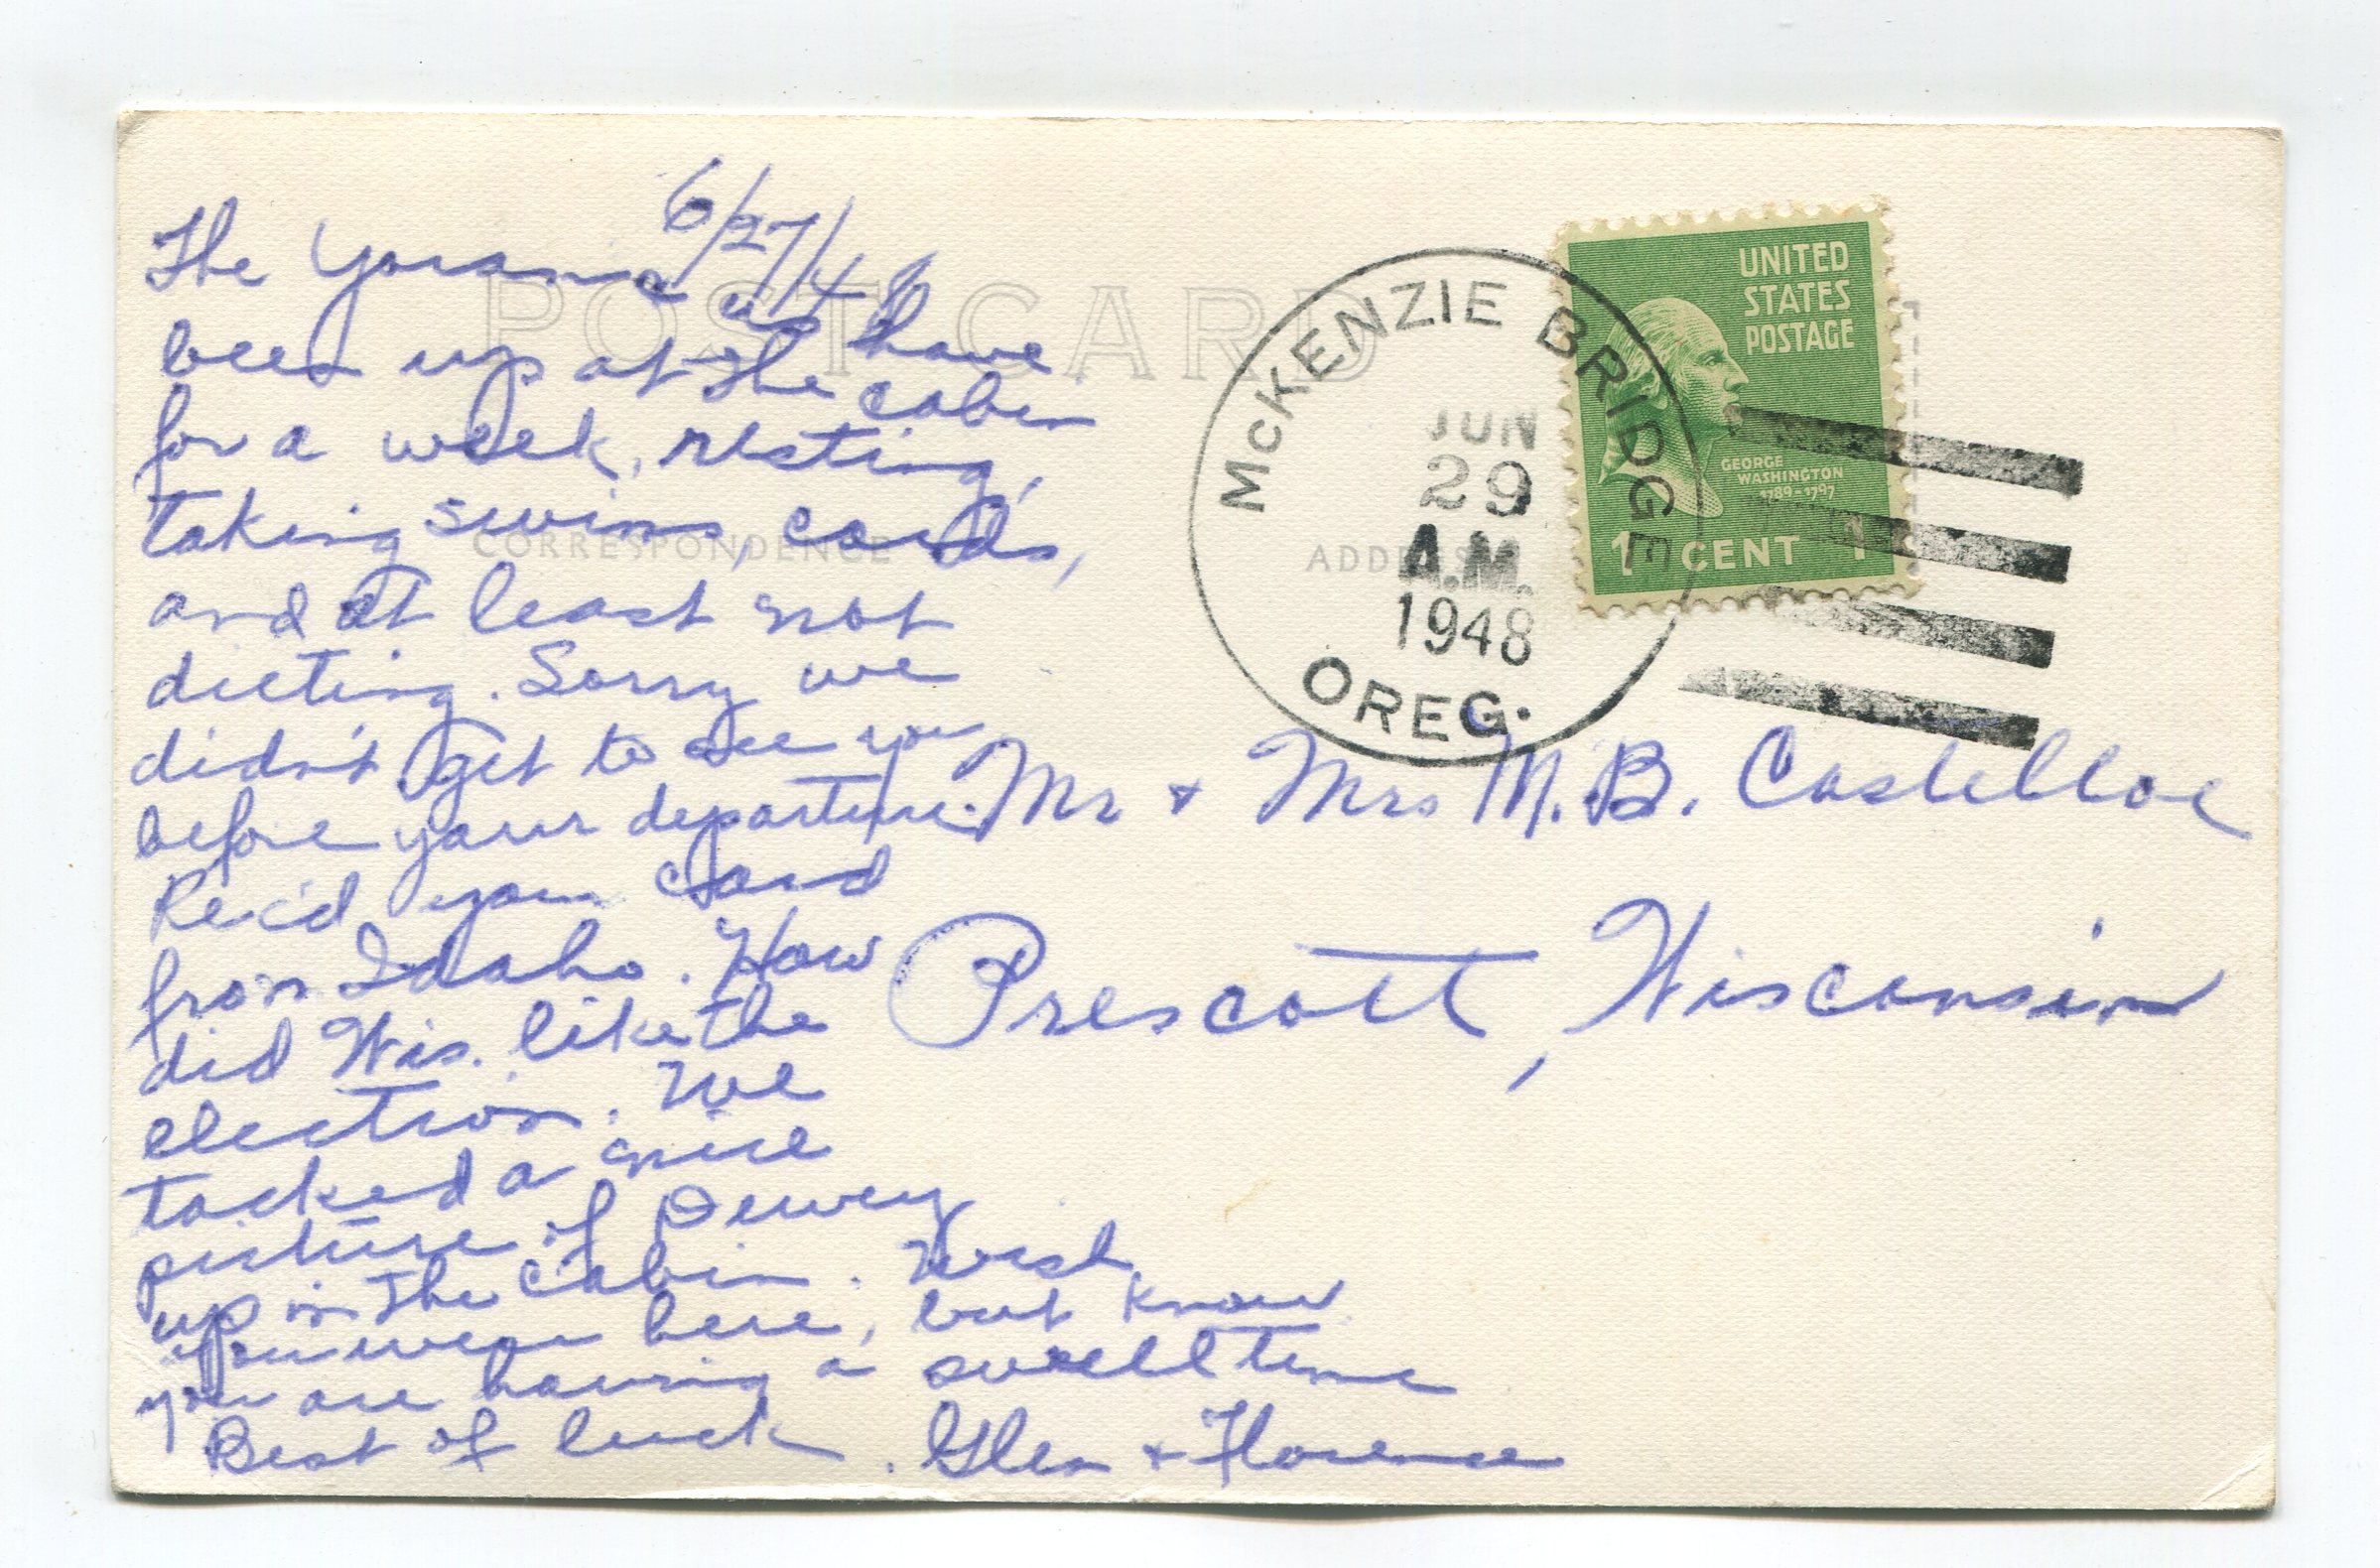 6/27/48
The Yorans & us have
been up at the cabin
for a week, resting,
taking swims, cards,
and at least not
dieting. Sorry we
didn't get to see you
before your departure.
Rec'd your card
from Idaho. How
did Wis. like the
election. We
tacked a nice
picture of Dewey
up in the cabin. Wish
you were here, but know
you are having a swell time
Best of luck. Glen & Florence
POST CARD
CORRESPONDENCE
ADDRESS
McKENZIE BRIDGE
JUN
29
A.M.
1948
OREG.
UNITED
STATES
POSTAGE
GEORGE
WASHINGTON
1789-1797
1 CENT 1
Mr & Mrs M. B. Castelloe
Prescott, Wisconsin